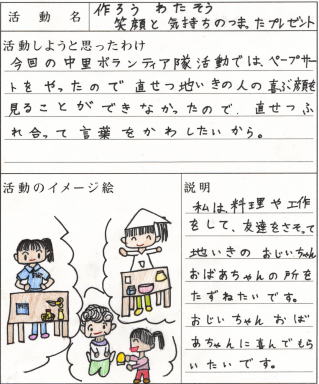 活動名
作ろう わたそう
笑顔と気持ちのつまったプレゼント
活動しようと思ったわけ
今回の中里ボランティア隊活動では、ペープサー
トをやったので直せつ地いきの人の喜ぶ顔を
見ることができなかったので、直せつふ
れ合って言葉をかわしたいから。
活動のイメージ絵
説明
私は、料理や工作
をして、友達をさそって
地いきのおじいちゃん
おばあちゃんの所を
たずねたいです。
おじいちゃんおば
あちゃんに喜んでもら
いたいです。